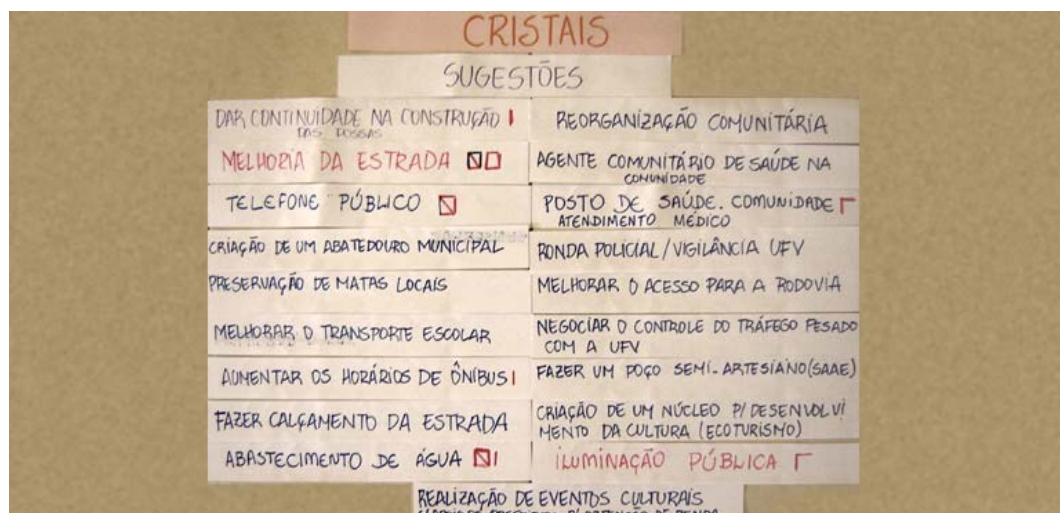 CRISTAIS
SUGESTÕES
DAR CONTINUIDADE NA CONSTRUÇÃO
DAS FOSSAS
MELHORIA DA ESTRADA
TELEFONE PÚBLICO
CRIAÇÃO DE UM ABATEDOURO MUNICIPAL
PRESERVAÇÃO DE MATAS LOCAIS
MELHORAR O TRANSPORTE ESCOLAR
AUMENTAR OS HORÁRIOS DE ÔNIBUS
FAZER CALÇAMENTO DA ESTRADA
ABASTECIMENTO DE ÁGUA
REORGANIZAÇÃO COMUNITÁRIA
AGENTE COMUNITÁRIO DE SAÚDE NA
COMUNIDADE
POSTO DE SAÚDE. COMUNIDADE
ATENDIMENTO MÉDICO
RONDA POLICIAL/VIGILÂNCIA UFV
MELHORAR O ACESSO PARA A RODOVIA
NEGOCIAR O CONTROLE DO TRÁFEGO PESADO
COM A UFV
FAZER UM POÇO SEMI-ARTESIANO (SAAE)
CRIAÇÃO DE UM NÚCLEO P/ DESENVOLVI
MENTO DA CULTURA (ECOTURISMO)
ILUMINAÇÃO PÚBLICA
REALIZAÇÃO DE EVENTOS CULTURAIS